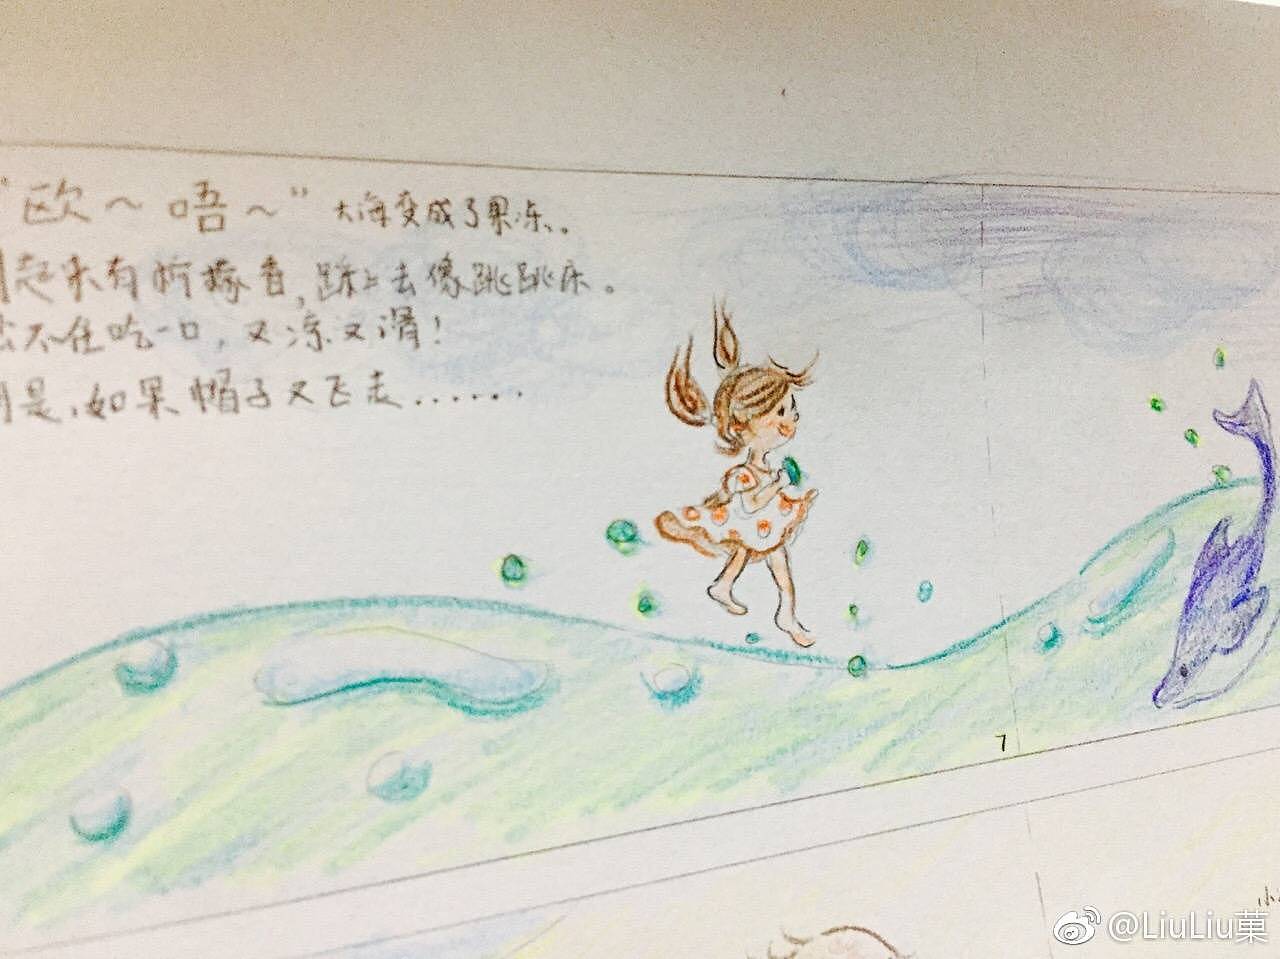 “欧～唔～”大海变成了果冻。
起来有柠檬香，踩上去像跳跳床。
不住吃一口，又凉又滑！
是，如果帽子又飞走......
7
@LiuLiu菓